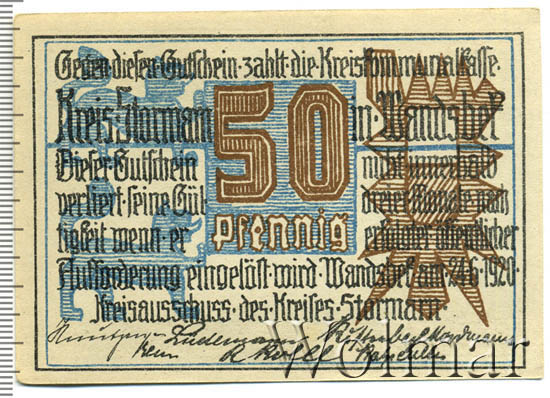 Gegen diesen Gutschein zahlt die Kreiskommunalkasse
Kreis Stormarn 50 in Wandsbek
Dieser Gutschein nicht innerhalb
verliert seine Gül- dreier Monate nach
tigkeit wenn er Pfennig erfolgter öffentlicher
Aufforderung eingelöst wird · Wandsbek am 24.6.1920 ·
Kreisausschuss · des · Kreises · Stormarn ·
Lüdemann
Wolmar